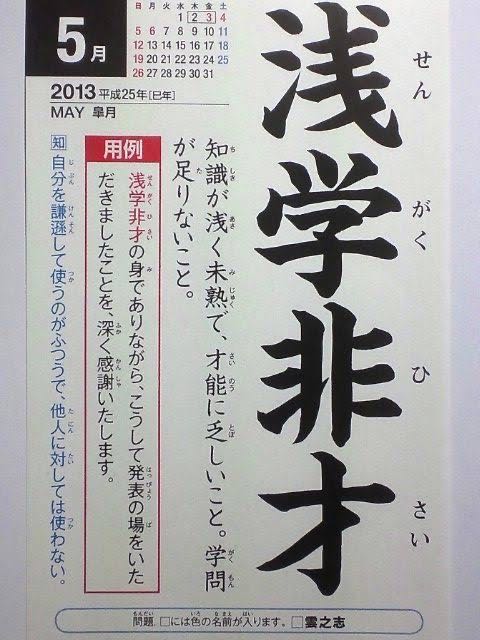 5月
日 月 火 水 木 金 土
1 2 3 4
5 6 7 8 9 10 11
12 13 14 15 16 17 18
19 20 21 22 23 24 25
26 27 28 29 30 31
2013 平成25年[巳年]
MAY 皐月
浅学非才
せん がく ひ さい
知識が浅く未熟で、才能に乏しいこと。学問
が足りないこと。
用例
浅学非才の身でありながら、こうして発表の場をいた
だきましたことを、深く感謝いたします。
知 自分を謙遜して使うのがふつうで、他人に対しては使わない。
問題.□には色の名前が入ります。□雲之志